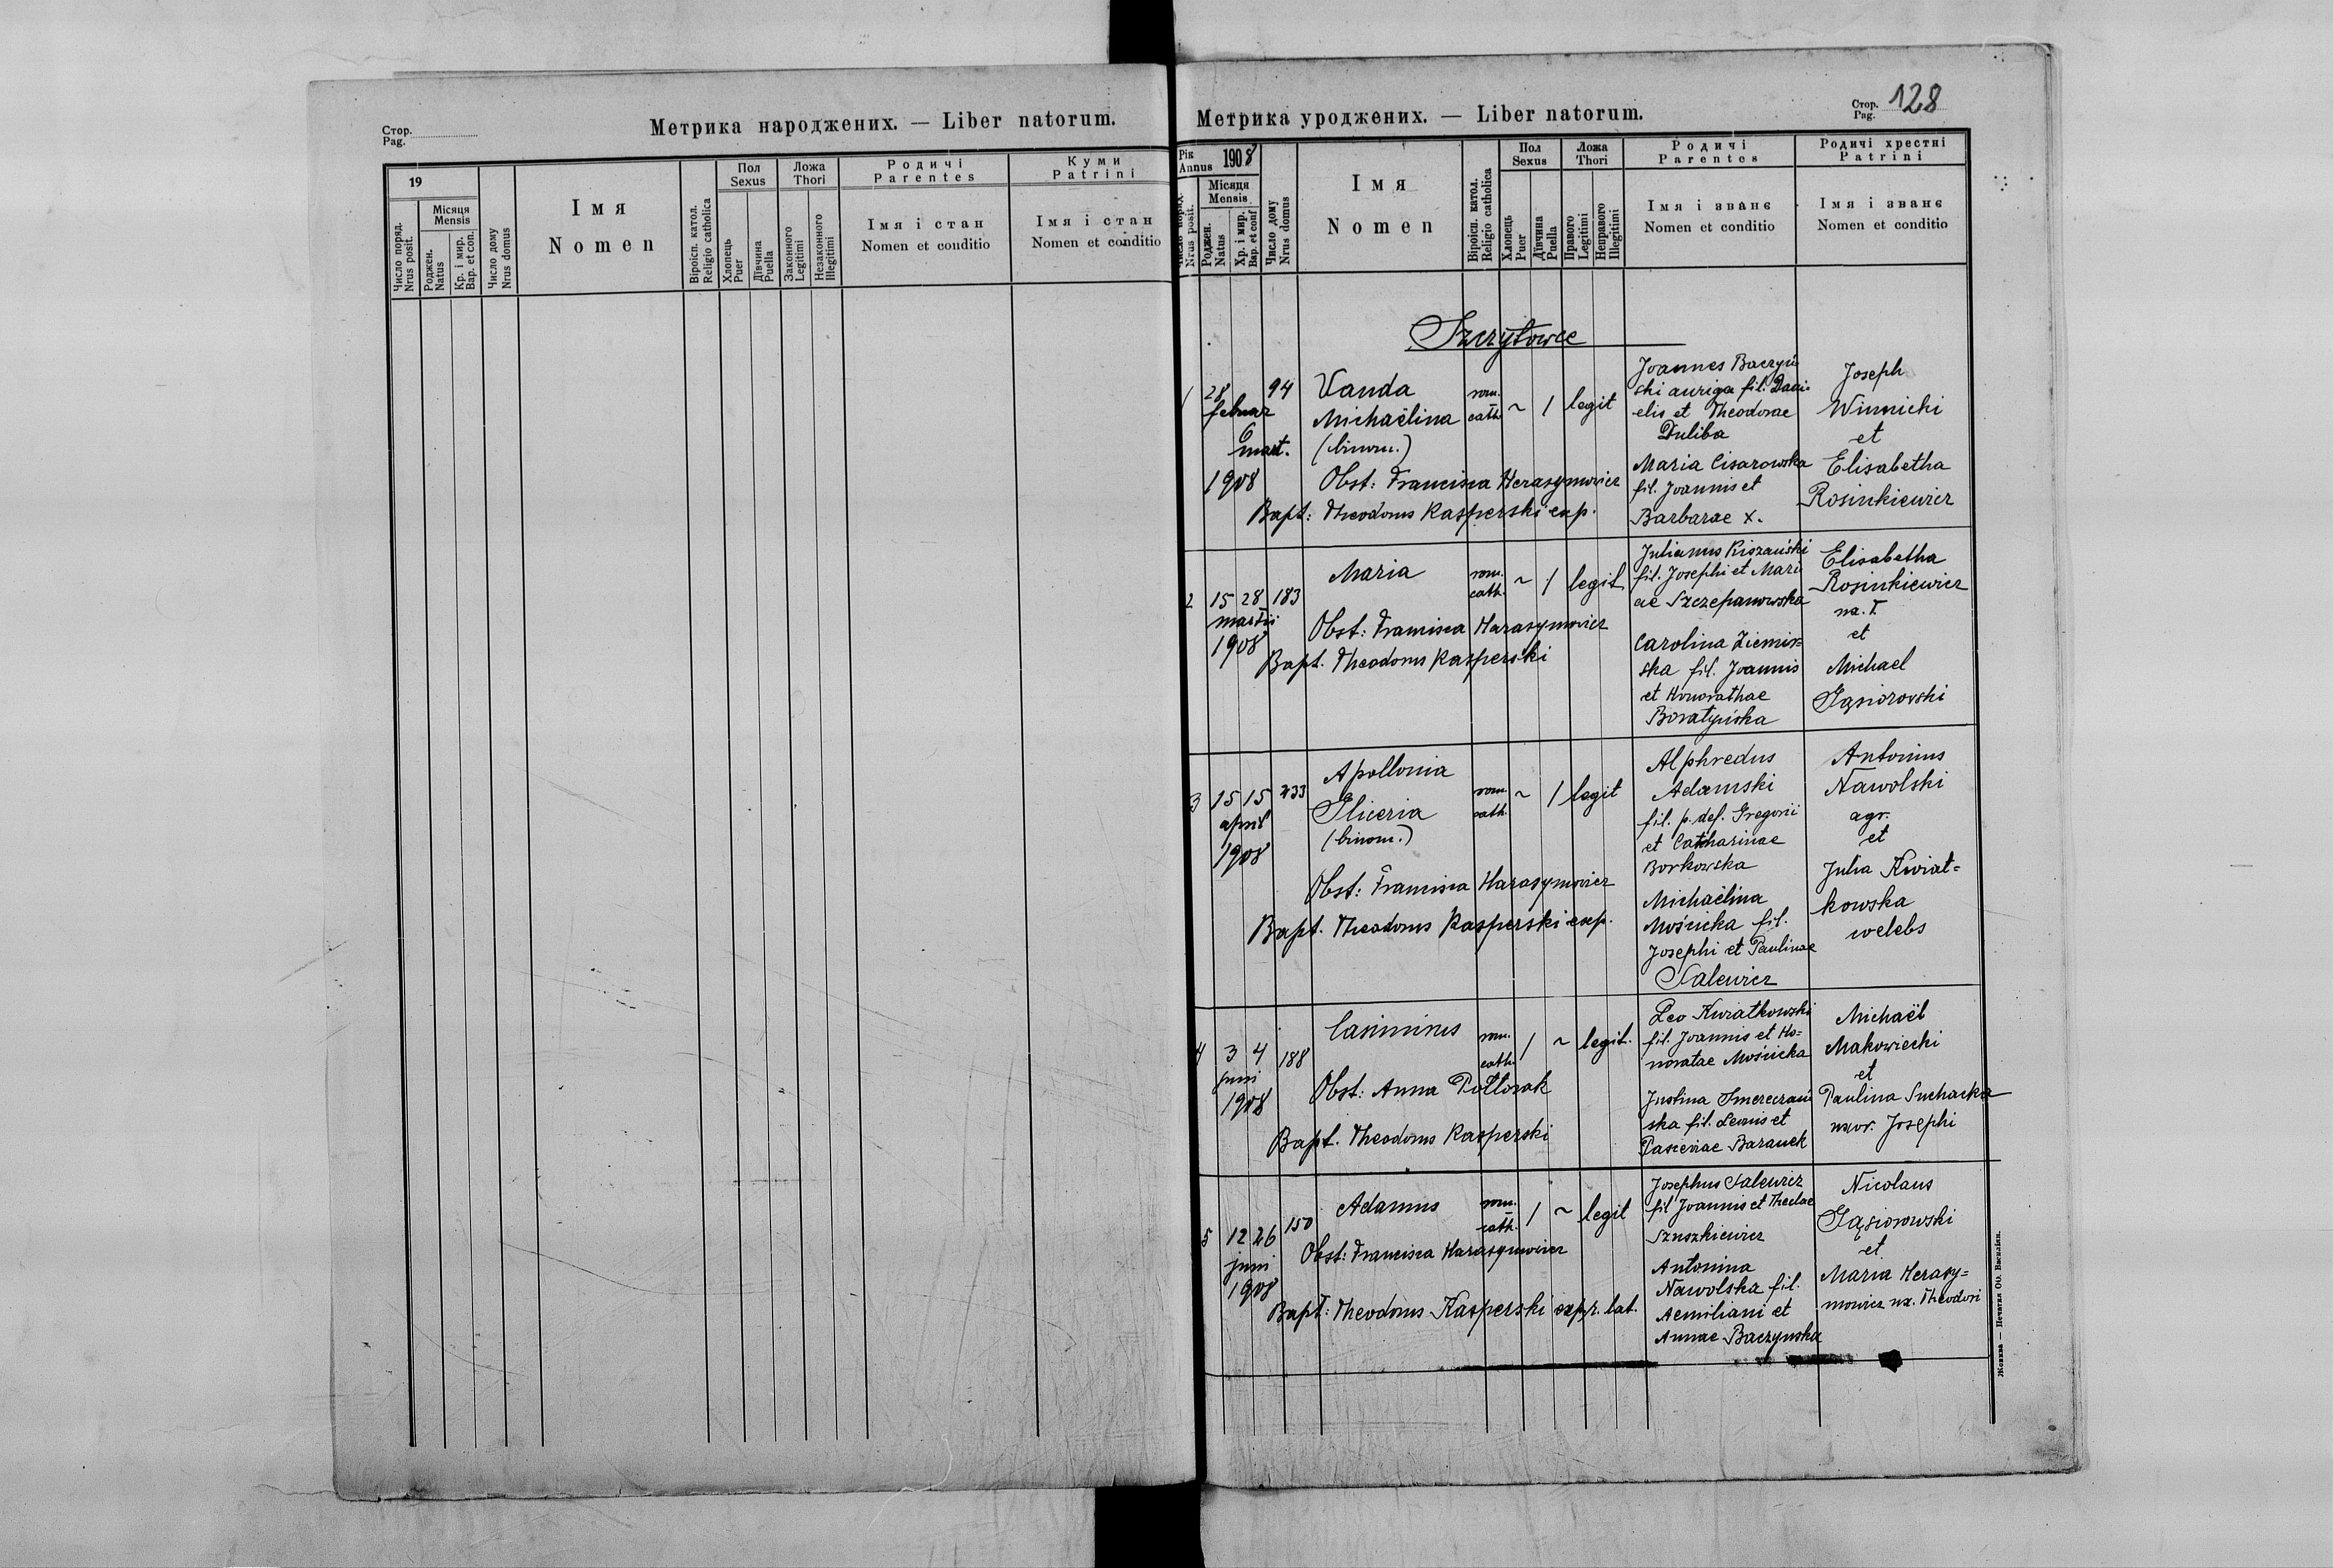 Стор.
Pag.
Метрика народжених. — Liber natorum.
19
Місяця
Mensis
Число поряд.
Nrus posit.
Роджен.
Natus
Кр. і мир.
Bap. et con.
Число дому
Nrus domus
Імя
Nomen
Віроісп. катол.
Religio catholica
Пол
Sexus
Хлопець
Puer
Дївчина
Puella
Ложа
Thori
Законного
Legitimi
Незаконного
Illegitimi
Родичі
Parentes
Імя і стан
Nomen et conditio
Куми
Patrini
Імя і стан
Nomen et conditio
Метрика уроджених. — Liber natorum.
Стор.
Pag. 128
Рік
Annus 1908
Місяця
Mensis
Nrus posit.
Роджен.
Natus
Хр. і мир.
Bap. et conf
Число дому
Nrus domus
Імя
Nomen
Віроісп. катол.
Religio catholica
Пол
Sexus
Хлопець
Puer
Дївчина
Puella
Ложа
Thori
Правого
Legitimi
Неправого
Illegitimi
Родичі
Parentes
Імя і званє
Nomen et conditio
Родичі хрестні
Patrini
Імя і званє
Nomen et conditio
Szczytowce
1 28 94 Vanda rom. ~ 1 legit
februar Michaëlina cath.
6
mart. (binom.)
1908 Obst: Francisca Herasymowicz
Bapt: Theodorus Kasperski exp.
Joannes Baczyń
ski auriga fil. Dani=
elis et Theodorae
Duliba
Maria Cisarowska
fil. Joannis et
Barbarae X.
Joseph
Winnicki
et
Elisabetha
Rosinkiewicz
2 15 28 183 Maria rom. cath. ~ 1 legit
martii
1908 Obst: Francisca Harasymowicz
Bapt. Theodorus Kasperski
Julianus Kiszański
fil. Josephi et Mari
ae Szczepanowska
Carolina Ziemis=
ska fil. Joannis
et Honorathae
Boratyńska
Elisabetha
Rosinkiewicz
na. T.
et
Michael
Gąsiorovski
3 15 15 233 Apollonia rom. cath. ~ 1 legit
april Gliceria
1908 (binom.)
Obst: Francisca Harasymowicz
Bapt. Theodorus Kasperski exp.
Alphredus
Adamski
fil. p. def. Gregorii
et Catharinae
Borkowska
Michaëlina
Mościcka fil.
Josephi et Paulinae
Salewicz
Antonius
Nawolski
agr.
et
Julia Kwiat=
kowska
welebs
4 3 4 188 Casimirus rom. cath. 1 ~ legit.
juni
1908 Obst: Anna Półtorak
Bapt. Theodorus Kasperski
Leo Kwiatkowski
fil. Joannis et Ho=
noratae Mościcka
Justina Smereczań
ska fil. Leonis et
Baranek
Michaël
Makowiecki
et
Paulina Suchacka
uxor. Josephi
5 12 26 150 Adamus rom. cath. 1 ~ legit
juni
1908 Obst: Francisca Harasymowicz
Bapt: Theodorus Kasperski exp. r. lat.
Josephus Salewicz
fil Joannis et Theclae
Szuszkiewicz
Antonina
Nawolska fil.
Aemiliani et
Annae Baczynska
Nicolaus
Gąsiorowski
et
Maria Herasy=
mowicz ux. Theodori
Жовква — Печатня ОО. Василіян.